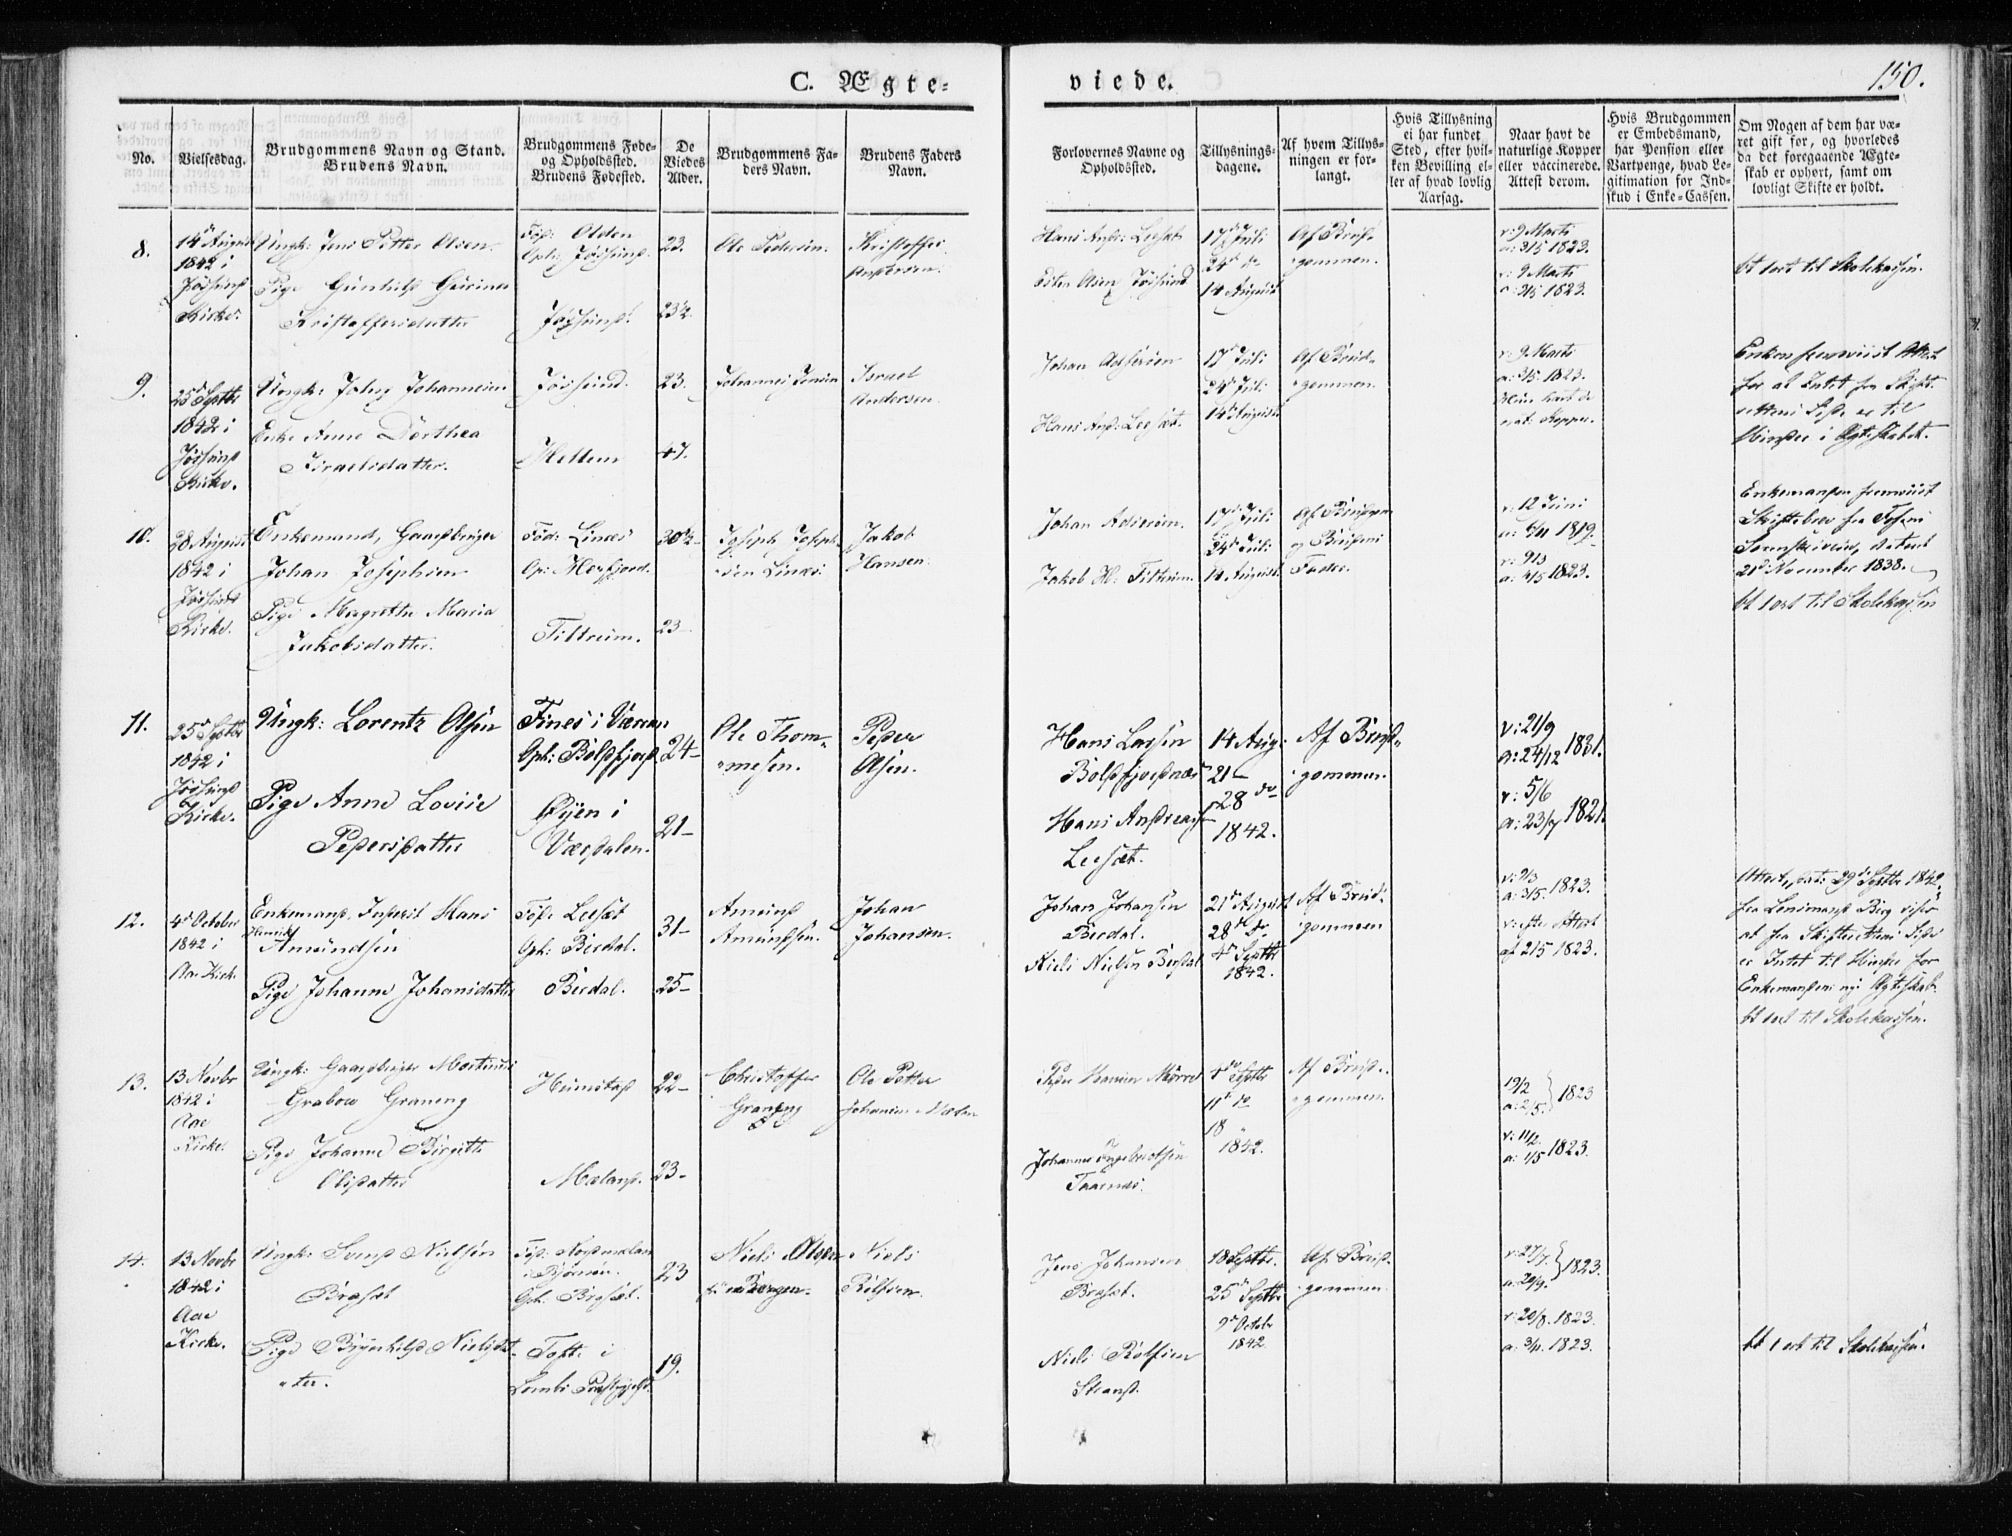 C. Ægte-
viede.
150.
No.
Vielsesdag.
Brudgommens Navn og Stand.
Brudens Navn.
Brudgommens Føde-
og Opholdssted.
Brudens Fødested.
De
Viedes
Alder.
Brudgommens Fa-
ders Navn.
Brudens Faders
Navn.
Forlovernes Navne og
Opholdssted.
Tillysnings-
dagene.
Af hvem Tillys-
ningen er for-
langt.
Hvis Tillysning
ei har fundet
Sted, efter hvil-
ken Bevilling el-
ler af hvad lovlig
Aarsag.
Naar havt de
naturlige Kopper
eller vaccinerede.
Attest derom.
Hvis Brudgommen
er Embedsmand,
har Pension eller
Vartpenge, hvad Le-
gitimation for Ind-
skud i Enke-Cassen.
Om Nogen af dem har væ-
ret gift før, og hvorledes
da det foregaaende Ægte-
skab er ophørt, samt om
lovligt Skifte er holdt.
8.
14de August
1842 i
Jøssund
Kirke.
Ungk: Jens Petter Olsen.
Pige Gunhild
Kristoffersdatter
Fød: Olden
Oph: Jøssund.
Jøssund.
23.
23½
Ole Pedersen.
Kristoffer
Andersen.
Hans Andr: Leesæt
Olsen Jøssund
17de Juli
24de do
14 August
Af Brud-
gommen.
v: 9 Marts
a: 3/5 1823.
v: 9 Marts
a: 3/5 1823.
bt 1 ort til Skolekassen.
9.
25de Septbr
1842 i
Jøssund
Kirke.
Ungk: Johan Johannesen
Enke Anne Dorthea
Israelsdatter.
Jøssund.
Hellem
23.
47.
Johannes Jensen
Israel
Andersen.
Johan Adsersen
Hans And: Leesæt.
17de Juli
24de Juli
14de August
Af Brud-
gommen.
v: 9 Marts
a: 3/5 1823.
nat: Kopper.
Enken fremviist Attest
for at Intet fra Skifte-
rettens Side er til
Hinder i Ægteskabet.
10.
28 August
1842 i
Jøssund
Kirke.
Enkemand, Gaardbruger
Johan Josephsen
Pige Magrethe Maria
Jakobsdatter.
Fød: Linæs
Op: Mefjord.
Tiltrem.
30½
23
Joseph Joseph-
sen Linæs.
Jakob
Hansen.
Johan Adsersen.
Jakob H: Tiltrem.
17de Juli
24de Juli
14 August.
Af Brudgom
og Brudens
Fader.
v: 12 Juni
1819.
v: 9/3
a: 3/5 1823.
Enkemanden fremviist
Skiftebrev fra Fosens
Sorenskriveri, datert
21de November 1838.
bt 1 ort til Skolekassen
11.
25de Septbr
1842 i
Jøssund
Kirke.
Ungk: Lorentz Olsen
Pige Anne Lovise
Pedersdatter
Fines i Værran
Oph: Boldfjord
Øyen i
Værdalen.
24
21
Ole Thom-
mesen.
Peder
Olsen.
Hans Larsen
Boldfjordnæs
Hans Andreassen
Leesæt.
14 Aug:
21
28 do
1842.
Af Brud-
gommen.
v: 21/9
a: 24/12 1831.
v: 5/6
a: 23/7 1821.
12.
4de October
1842 i
Aae Kirke
Enkemand, Inderst Hans
Henrik
Amundsen
Pige Johanne Johansdatter
Fød: Leesæt
Oph: Berdal.
Berdal.
31
25
Amund
Amundsen.
Johan
Johansen.
Johan Johansen
Berdal.
Niels Nielsen Berdal
21de August
28de do.
4de Septbr
1842.
Af Brud-
gommen
v: 9/3
a: 3/5 1823.
v: efter Attest
af 2/5 1823.
Attest, dat: 29de Septbr 1842
fra Lensmand Berg viser
at fra Skifterettens Side
er Intet til Hinder for
Enkemandens nye Ægteskab.
bt 1 ort til Skolekassen.
13.
13 Novbr
1842 i
Aae
Kirke.
Ungk: Gaardbruger Martinus
Grabow Graneng
Pige Johanne Birgitte
Olsdatter
Heimstad
Mæland.
22
23
Christoffer
Graneng
Ole Petter
Johansen
Peder Hansen Mørre
Johannes Ingebrigtsen
Taarnæs.
4de Septbr
11te do
18
1842.
Af Brud-
gommen.
19/2
a: 2/5. 1823
v: 11/2.
a: 1/5 1823.
14.
13 Novbr
1842 i
Aae
Kirke.
Ungk: Svend Nielsen
Bræsæt
Pige Nielsdat-
ter.
i Bjørnør.
Oph: Bræsæt.
Toft i
23
19.
Niels Olsen
Niels
Rolfsen.
Jens Johansen
Bræsæt.
Niels Rolfsen
Strand.
18 Septbr.
25de Septbr
9de Octobr
1842
Af Brud-
gommen
v: 27/7.
a: 29/9. 1823.
v: 20/8. 1823.
1823.
bt 1 ort til Skolekassen.